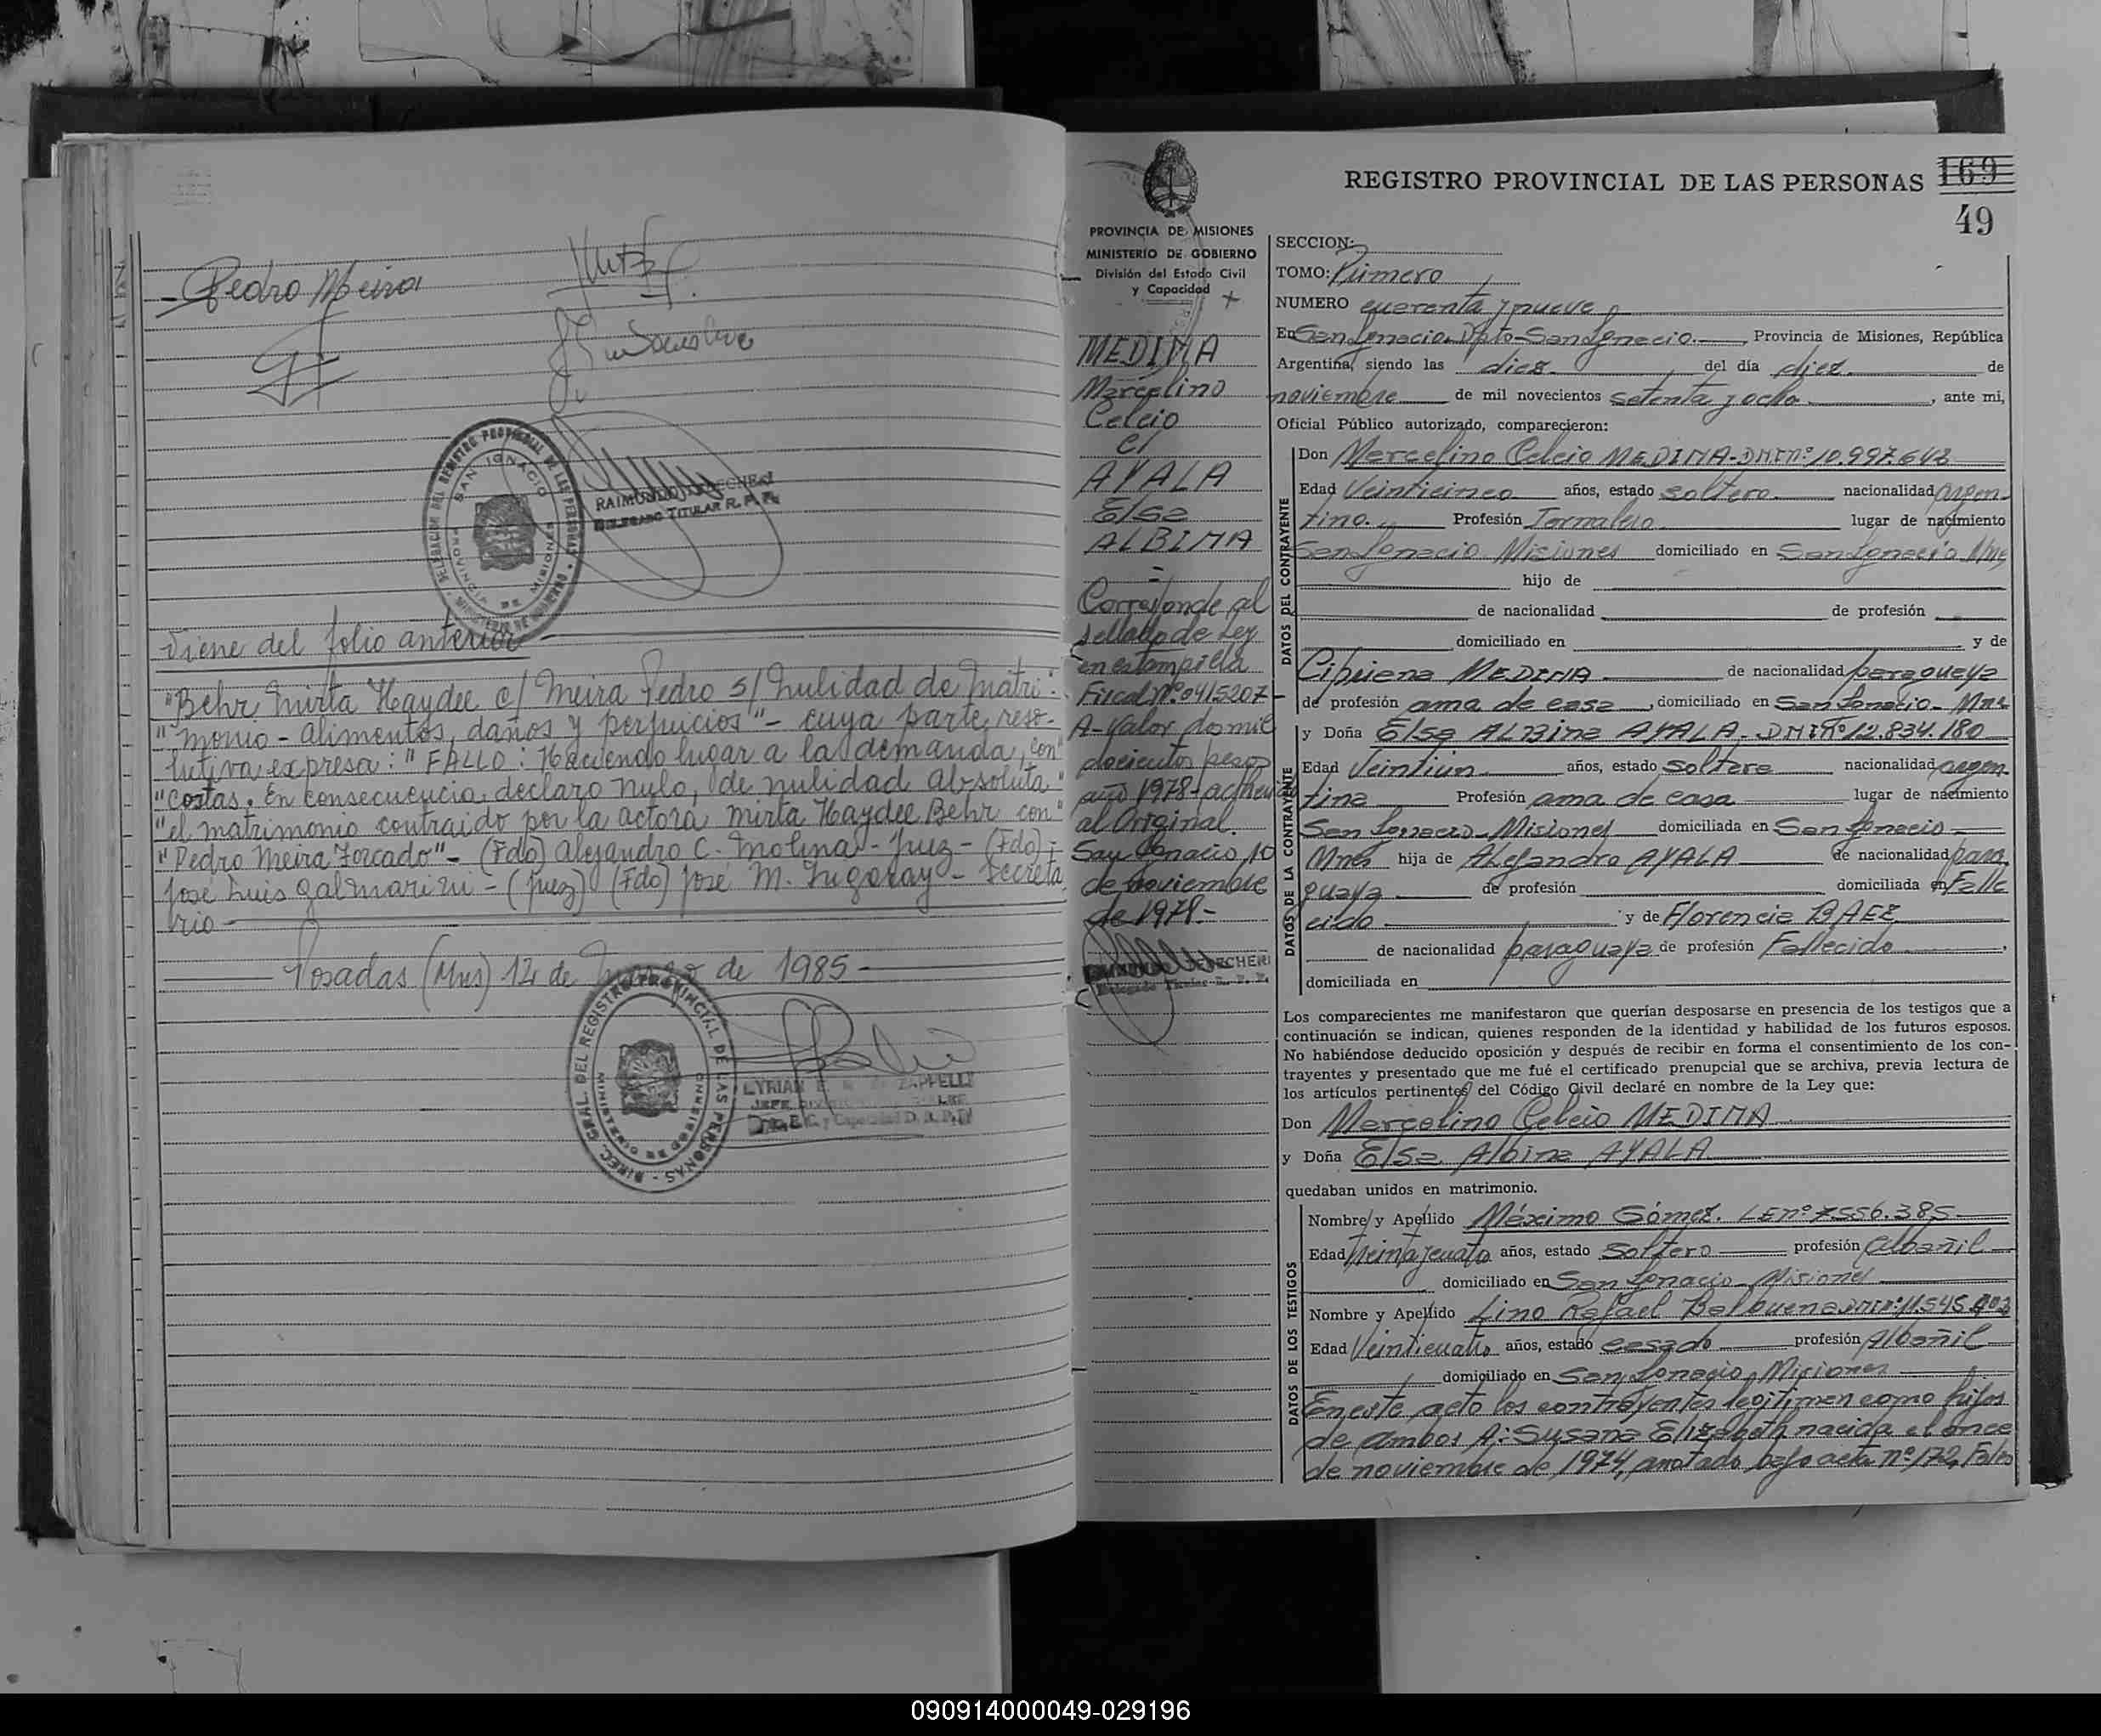 Pedro Meira
DELEGACION DEL REGISTRO PROVINCIAL DE LAS PERSONAS
SAN IGNACIO
PROVINCIA DE MISIONES
MINISTERIO DE GOBIERNO
RAIMUNDO
DELEGADO TITULAR R. P. P.
Viene del folio anterior
"Behr Mirta Haydee c/ Meira Pedro s/ Nulidad de Matri-
"monio - alimentos, daños y perjuicios" - cuya parte reso-
lutiva expresa: "FALLO: Haciendo lugar a la demanda, con"
"costas. En consecuencia, declaro nulo, de nulidad absoluta"
"el matrimonio contraido por la actora Mirta Haydee Behr con"
"Pedro Meira Forcado" - (Fdo) Alejandro C. Molina - Juez - (Fdo) -
José Luis Galmarini - (Juez) (Fdo) José M. - Secreta
rio
Posadas (Mns) 12 de de 1985
DIREC. GRAL. DEL REGISTRO PROVINCIAL DE LAS PERSONAS
MINISTERIO DE GOBIERNO
LYRIAN E. ZAPPELLI
PROVINCIA DE MISIONES
MINISTERIO DE GOBIERNO
División del Estado Civil
y Capacidad
MEDINA
Marcelino
Celcio
c/
AYALA
Elsa
ALBINA
Corresponde al
sellado de Ley
en estampilla
Fiscal Nº 0415207
A-Valor dos mil
docientos pesos
año 1978-
al Original.
San Ignacio, 10
de noviembre
de 1978-
REGISTRO PROVINCIAL DE LAS PERSONAS 169
49
SECCION:
TOMO: Primero
NUMERO cuarenta y nueve
En San Ignacio, Dpto San Ignacio. , Provincia de Misiones, República
Argentina, siendo las diez del día diez de
noviembre de mil novecientos setenta y ocho , ante mi,
Oficial Público autorizado, comparecieron:
DATOS DEL CONTRAYENTE
Don Marcelino Celcio MEDINA-DNI nº 10.997.643
Edad Veinticinco años, estado soltero. nacionalidad argen-
tino. Profesión Jornalero lugar de nacimiento
San Ignacio Misiones domiciliado en San Ignacio Mnes
hijo de
de nacionalidad de profesión
domiciliado en y de
Cipriana MEDINA de nacionalidad paraguaya
de profesión ama de casa , domiciliado en San Ignacio - Mnes
DATOS DE LA CONTRAYENTE
y Doña Elsa ALBina AYALA - DNI nº 12.834.180
Edad Veintiun años, estado soltera nacionalidad argen-
tina Profesión ama de casa lugar de nacimiento
San Ignacio - Misiones domiciliado en San Ignacio -
Mnes hija de Alejandro AYALA de nacionalidad para
guaya de profesión domiciliada en Falle
cido y de Florencia BAEZ
de nacionalidad paraguaya de profesión Fallecida ,
domiciliada en
Los comparecientes me manifestaron que querían desposarse en presencia de los testigos que a
continuación se indican, quienes responden de la identidad y habilidad de los futuros esposos.
No habiéndose deducido oposición y después de recibir en forma el consentimiento de los con-
trayentes y presentado que me fué el certificado prenupcial que se archiva, previa lectura de
los artículos pertinentes del Código Civil declaré en nombre de la Ley que:
Don Marcelino Celcio MEDINA
y Doña Elsa Albina AYALA
quedaban unidos en matrimonio.
DATOS DE LOS TESTIGOS
Nombre y Apellido Máximo Gómez. LE nº 7.556.385
Edad treinta y cuatro años, estado soltero profesión albañil
domiciliado en San Ignacio - Misiones
Nombre y Apellido Lino Rafael Balbuena DNI nº 11.545.
Edad Veinticuatro años, estado casado profesión Albañil
domiciliado en San Ignacio, Misiones
En este acto los contrayentes legitiman como hijos
de ambos A: Susana Elizabeth nacida el once
de noviembre de 1974, anotado bajo acta nº 172, Folio
090914000049-029196